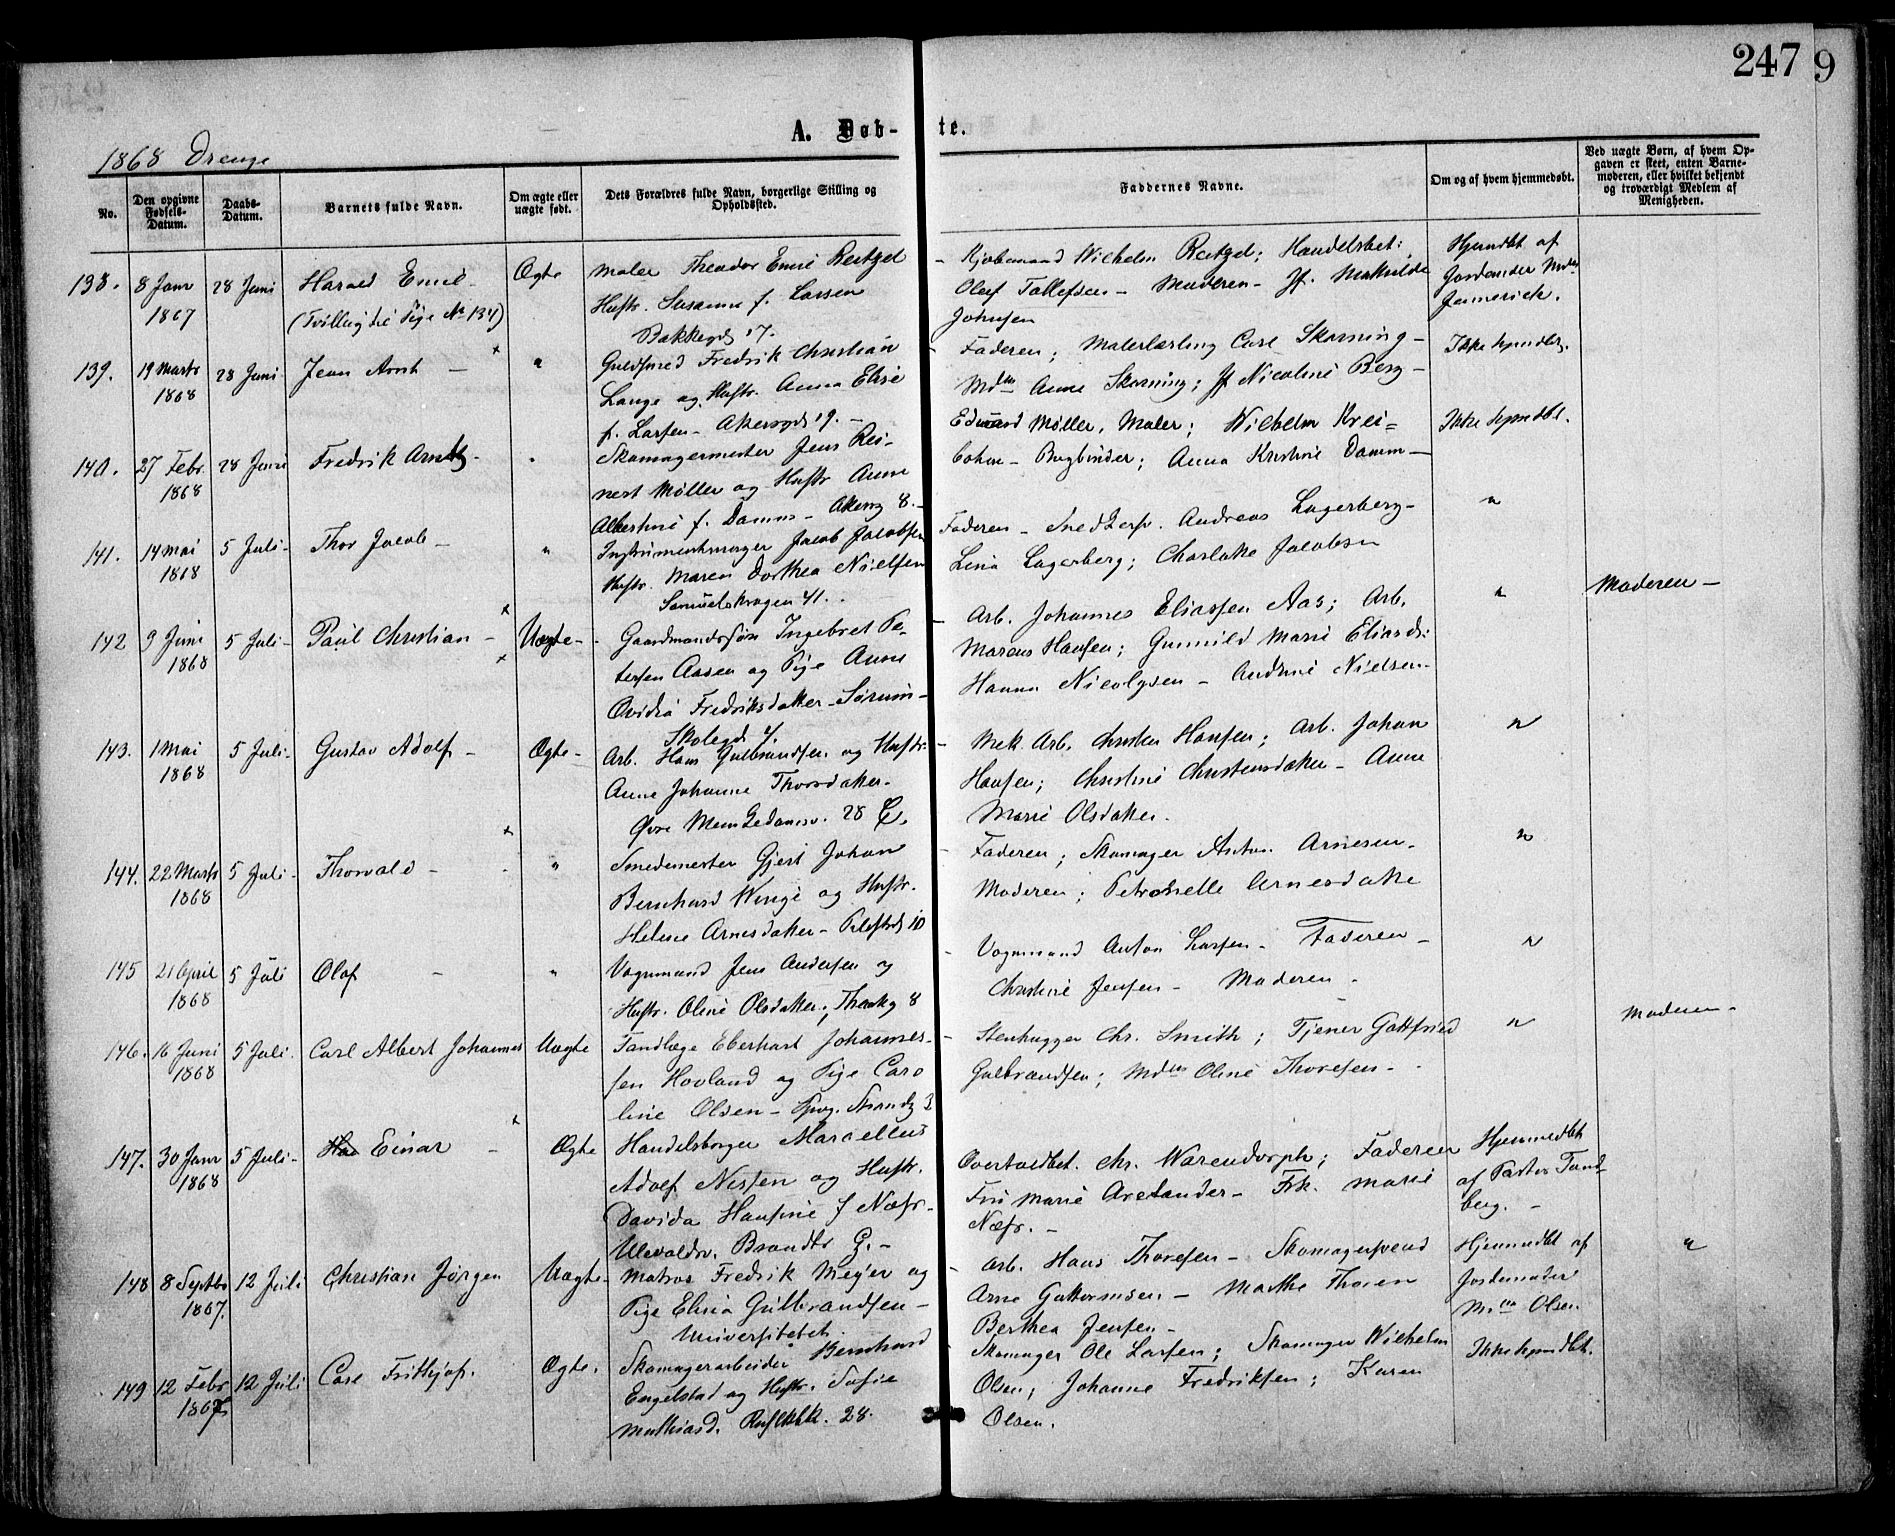 247 9
A. Døb- te.
1868 Drenge
No.
Den opgivne Fødsels-Datum.
Daabs-Datum.
Barnets fulde Navn.
Om ægte eller uægte født.
Dets Forældres fulde Navn, borgerlige Stilling og Opholdssted.
Faddernes Navne.
Om og af hvem hjemmedøbt.
Ved uægte Børn, af hvem Opgaven er skeet, enten Barnemoderen, eller hvilket bekjendt og troværdigt Medlem af Menigheden.
138. 8 Janr 1867 28 Juni Harald Emil (Tvilling til Pige No 134) Ægte
Maler Theodor Emil Reitzel
Hustr. Susanne f. Larsen
Bakkegd 17.
Kjøbmand Wilhelm Reitzel; Handelsbet:
Oluf Tollefsen - Moderen - Jf. Mathilde
Johnsen
Hjemdbt af
Jordemoder Mdm
139. 19 Marts 1868 28 Juni Jean Arnt - "
Guldsmed Fredrik Christian
Lange og Hustr. Anna Elise
f. Larsen - Akersgd 19. -
Faderen; Malerlærling Carl Skorning -
Mdm Anne Skorning; Jf Nicoline Berg -
Ikke hjemdbt.
140. 27 Febr 1868 28 Juni Fredrik Arntz - "
Skomagermester Jens Rei-
nert Møller og Hustr Anne
Albertine f. Damm - Akersg 8. -
Edvard Møller, Maler; Wilhelm Krei=
bohm - Bogbinder; Anna Kristine Damm -
Ikke hjemdbt.
141. 14 Mai 1868 5 Juli - Thor Jacob - "
Instrumentmager Jacob Jacobsen
Hustr. Maren Dorthea Nielsen
41.
Faderen - Snedkersv. Andreas Lagerberg -
Lina Lagerberg; Charlotte Jacobsen
"
142 9 Juni 1868 5 Juli - Paul Christian - Uægte -
Gaardmandssøn Ingebret Pe-
tersen Aasen og Pige Anne
Ovidia Fredriksdatter - Sørum -
Skolegd 4.
Arb. Johannes Eliassen Aas; Arb.
Marcus Hansen; Gunnild Marie Eliasd:
Hanna Nicolysen - Andrine Nielsen -
" Moderen -
143. 1 Mai 1868 5 Juli - Gustav Adolf - Ægte -
Arb. Hans Gulbrandsen og Hustr.
Anne Johanne Thorsdatter -
Øvre 28 C.
Mek. Arb. Christen Hansen; Arb. Johan
Hansen; Christine Christensdatter - Anne
Marie Olsdatter.
"
144. 22 Marts 1868 5 Juli - Thorvald - "
Smedemester Gjert Johan
Bernhard Winge og Hustr.
Helene Arnesdatter - Pilestrd 10
Faderen; Skomager Anton Arnesen -
Moderen; Petronelle Arnesdatter
"
145 21 April 1868 5 Juli Olaf - "
Vognmand Jens Andersen og
Hustr. Oline Olsdatter; 8
Vognmand Anton Larsen - Faderen -
Christine Jensen - Moderen -
"
146. 16 Juni 1868 5 Juli. Carl Albert Johannes Uægte
Tandlæge Eberhart Johannes-
sen Hovland og Pige Caro
line Olsen -
Stenhugger Chr. Smith; Tjener Gottfried
Gulbrandsen; Mdm Oline Thoresen -
" Moderen -
147. 30 Janr 1868 5 Juli - Einar - Ægte
Handelsborger Marcellus
Adolf Nissen og Hustr.
Davida Hansine f Næss -
Ullevoldsv. Brandts G. -
Overtoldbet. Chr. Warendorph; Faderen
Fru Marie Arctander - Frk. Marie
Næss. -
Hjemmedbt
af Pastor Tand-
berg. -
148 8 Septbr 1867. 12 Juli Christian Jørgen Uægte -
Matros Fredrik Meyer og
Pige Elisa Gulbrandsen -
Universitetet.
Arb. Hans Thoresen - Skomagersvend
Arne Guttormsen - Marthe Thoresen
Berthea Jensen -
Hjemmedbt af
Jordemoder
Mdm Olsen
"
149 12 Febr 1867 12 Juli Carl Frithjof. Ægte.
Skomagerarbeider Bernhard
Engelstad og Hustr. Sofie
Mathiasd. 28.
Skomager Ole Larsen; Skomager Wilhelm
Olsen; Johanne Fredriksen; Karen
Olsen.
Ikke hjemdbt.